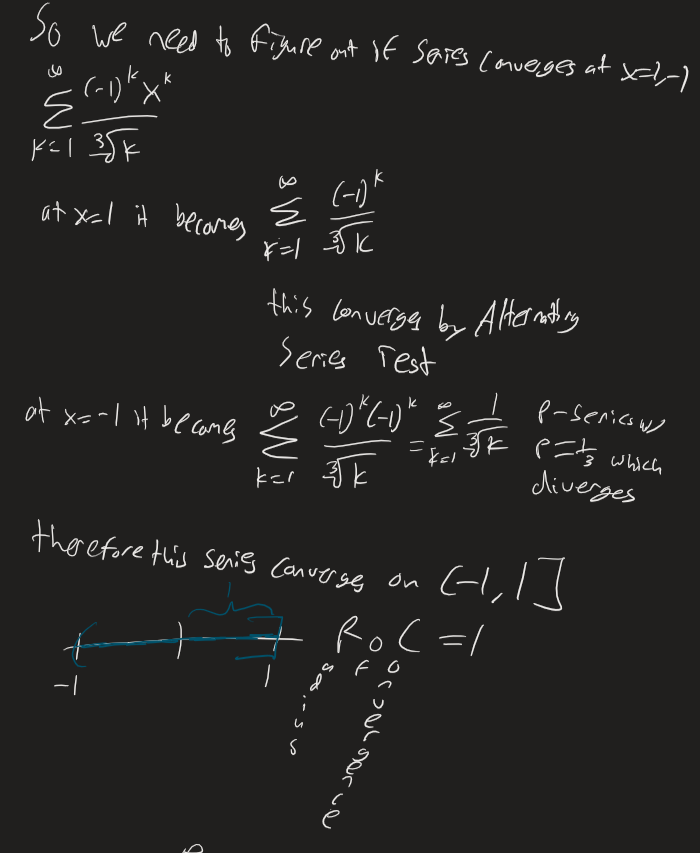 So we need to figure out if series converges at x=1,-1
∞
Σ (-1)^k x^k / ∛k
k=1
at x=1 it becomes ∞ Σ k=1 (-1)^k / ∛k
this converges by Alternating
Series Test
at x=-1 it becomes ∞ Σ k=1 (-1)^k(-1)^k / ∛k = ∞ Σ k=1 1/∛k p-series w/
p=1/3 which
diverges
therefore this series converges on (-1, 1]
1
-1 1
RoC = 1
Radius
of
Convergence